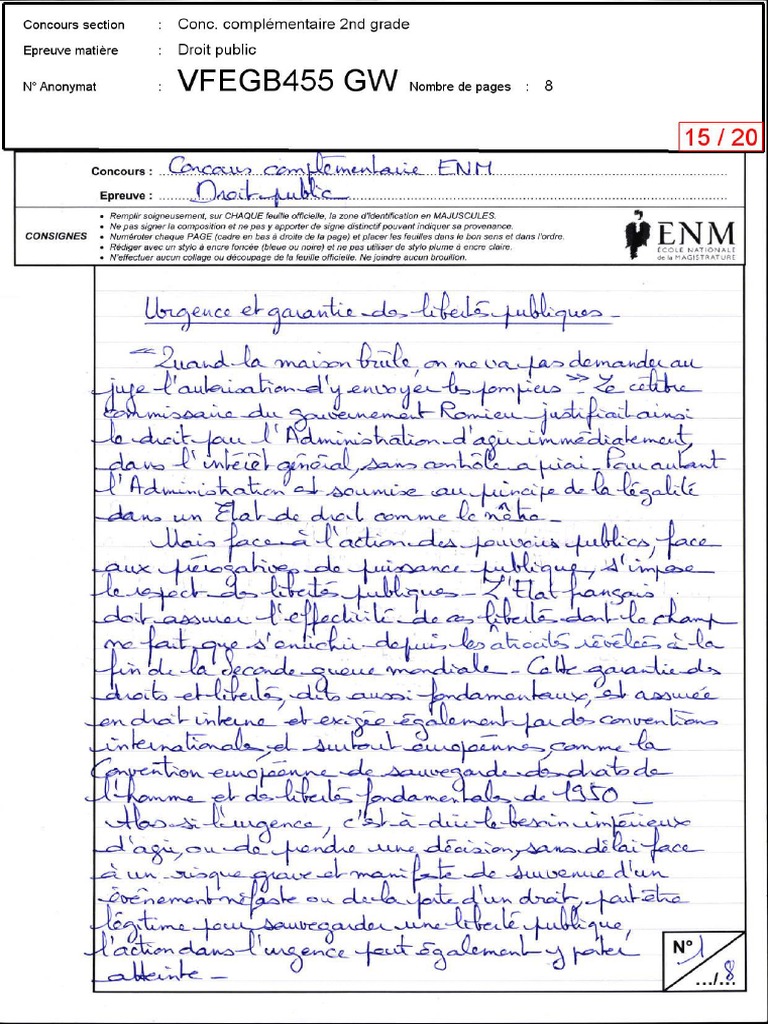 Concours section : Conc. complémentaire 2nd grade
Epreuve matière : Droit public
N° Anonymat : VFEGB455 GW Nombre de pages : 8
15 / 20
Concours : Concours complémentaire ENM
Epreuve : Droit public
CONSIGNES
• Remplir soigneusement, sur CHAQUE feuille officielle, la zone d'identification en MAJUSCULES.
• Ne pas signer la composition et ne pas y apporter de signe distinctif pouvant indiquer sa provenance.
• Numéroter chaque PAGE (cadre en bas à droite de la page) et placer les feuilles dans le bon sens et dans l'ordre.
• Rédiger avec un stylo à encre foncée (bleue ou noire) et ne pas utiliser de stylo plume à encre claire.
• N'effectuer aucun collage ou découpage de la feuille officielle. Ne joindre aucun brouillon.
ENM
ÉCOLE NATIONALE
de la MAGISTRATURE
Urgence et garantie des libertés publiques -
"Quand la maison brûle, on ne va pas demander au
juge l'autorisation d'y envoyer les pompiers". Le célèbre
commissaire du gouvernement Romieu justifiait ainsi
le droit pour l'Administration d'agir immédiatement,
dans l'intérêt général, sans contrôle a priori - Pour autant
l'Administration est soumise au principe de la légalité
dans un Etat de droit comme le nôtre -
Mais face à l'action des pouvoirs publics, face
aux prérogatives de puissance publique, s'impose
le respect des libertés publiques - L'Etat français
doit assurer l'effectivité de ces libertés dont le champ
ne fait que s'enrichir depuis les atrocités révélées à la
fin de la Seconde guerre mondiale - Cette garantie des
droits et libertés, dits aussi fondamentaux, est assurée
en droit interne et exigée également par des conventions
internationales, et surtout européennes, comme la
Convention européenne de sauvegarde des droits de
l'homme et des libertés fondamentales de 1950 -
Alors si l'urgence, c'est-à-dire le besoin impérieux
d'agir, ou de prendre une décision, sans délai face
à un risque grave et manifeste de survenue d'un
évènement néfaste ou de la perte d'un droit, peut être
légitime pour sauvegarder une liberté publique,
l'action dans l'urgence peut également y porter
atteinte -
N° 1
.../... 8